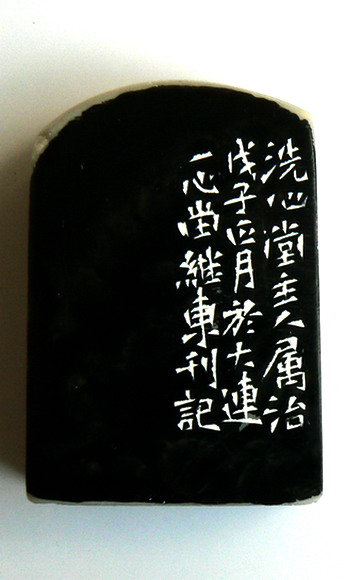 洗心堂主人属治
戊子正月於大連
一心堂継東刊記